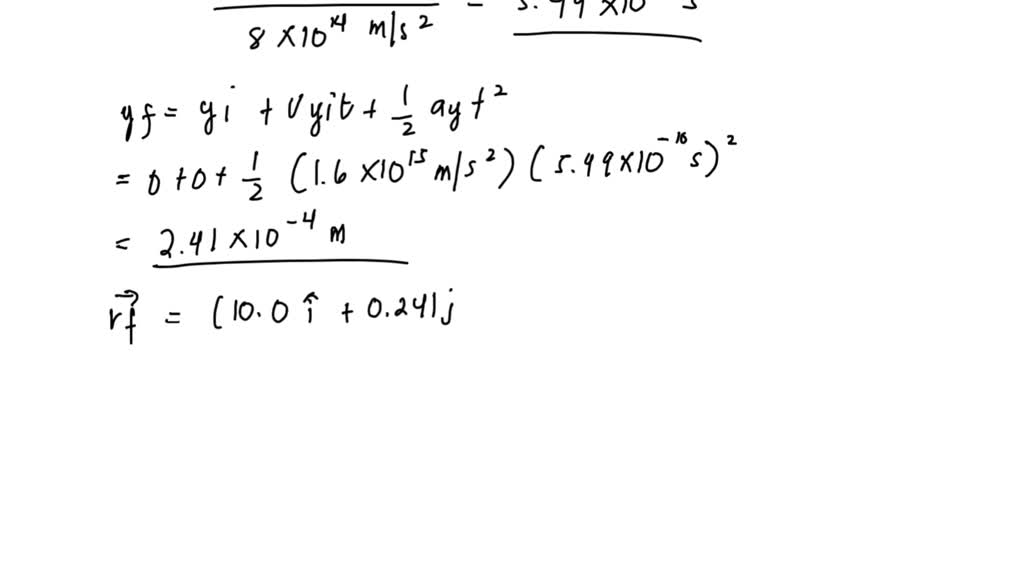 8 × 10¹⁴ m/s² = 5.49 × 10 s
yf = yi + Vyit + 1/2 ayt²
= 0 + 0 + 1/2 (1.6 × 10¹⁵ m/s²) (5.49 × 10⁻¹⁰ s)²
= 2.41 × 10⁻⁴ m
r⃗f = (10.0 î + 0.241j